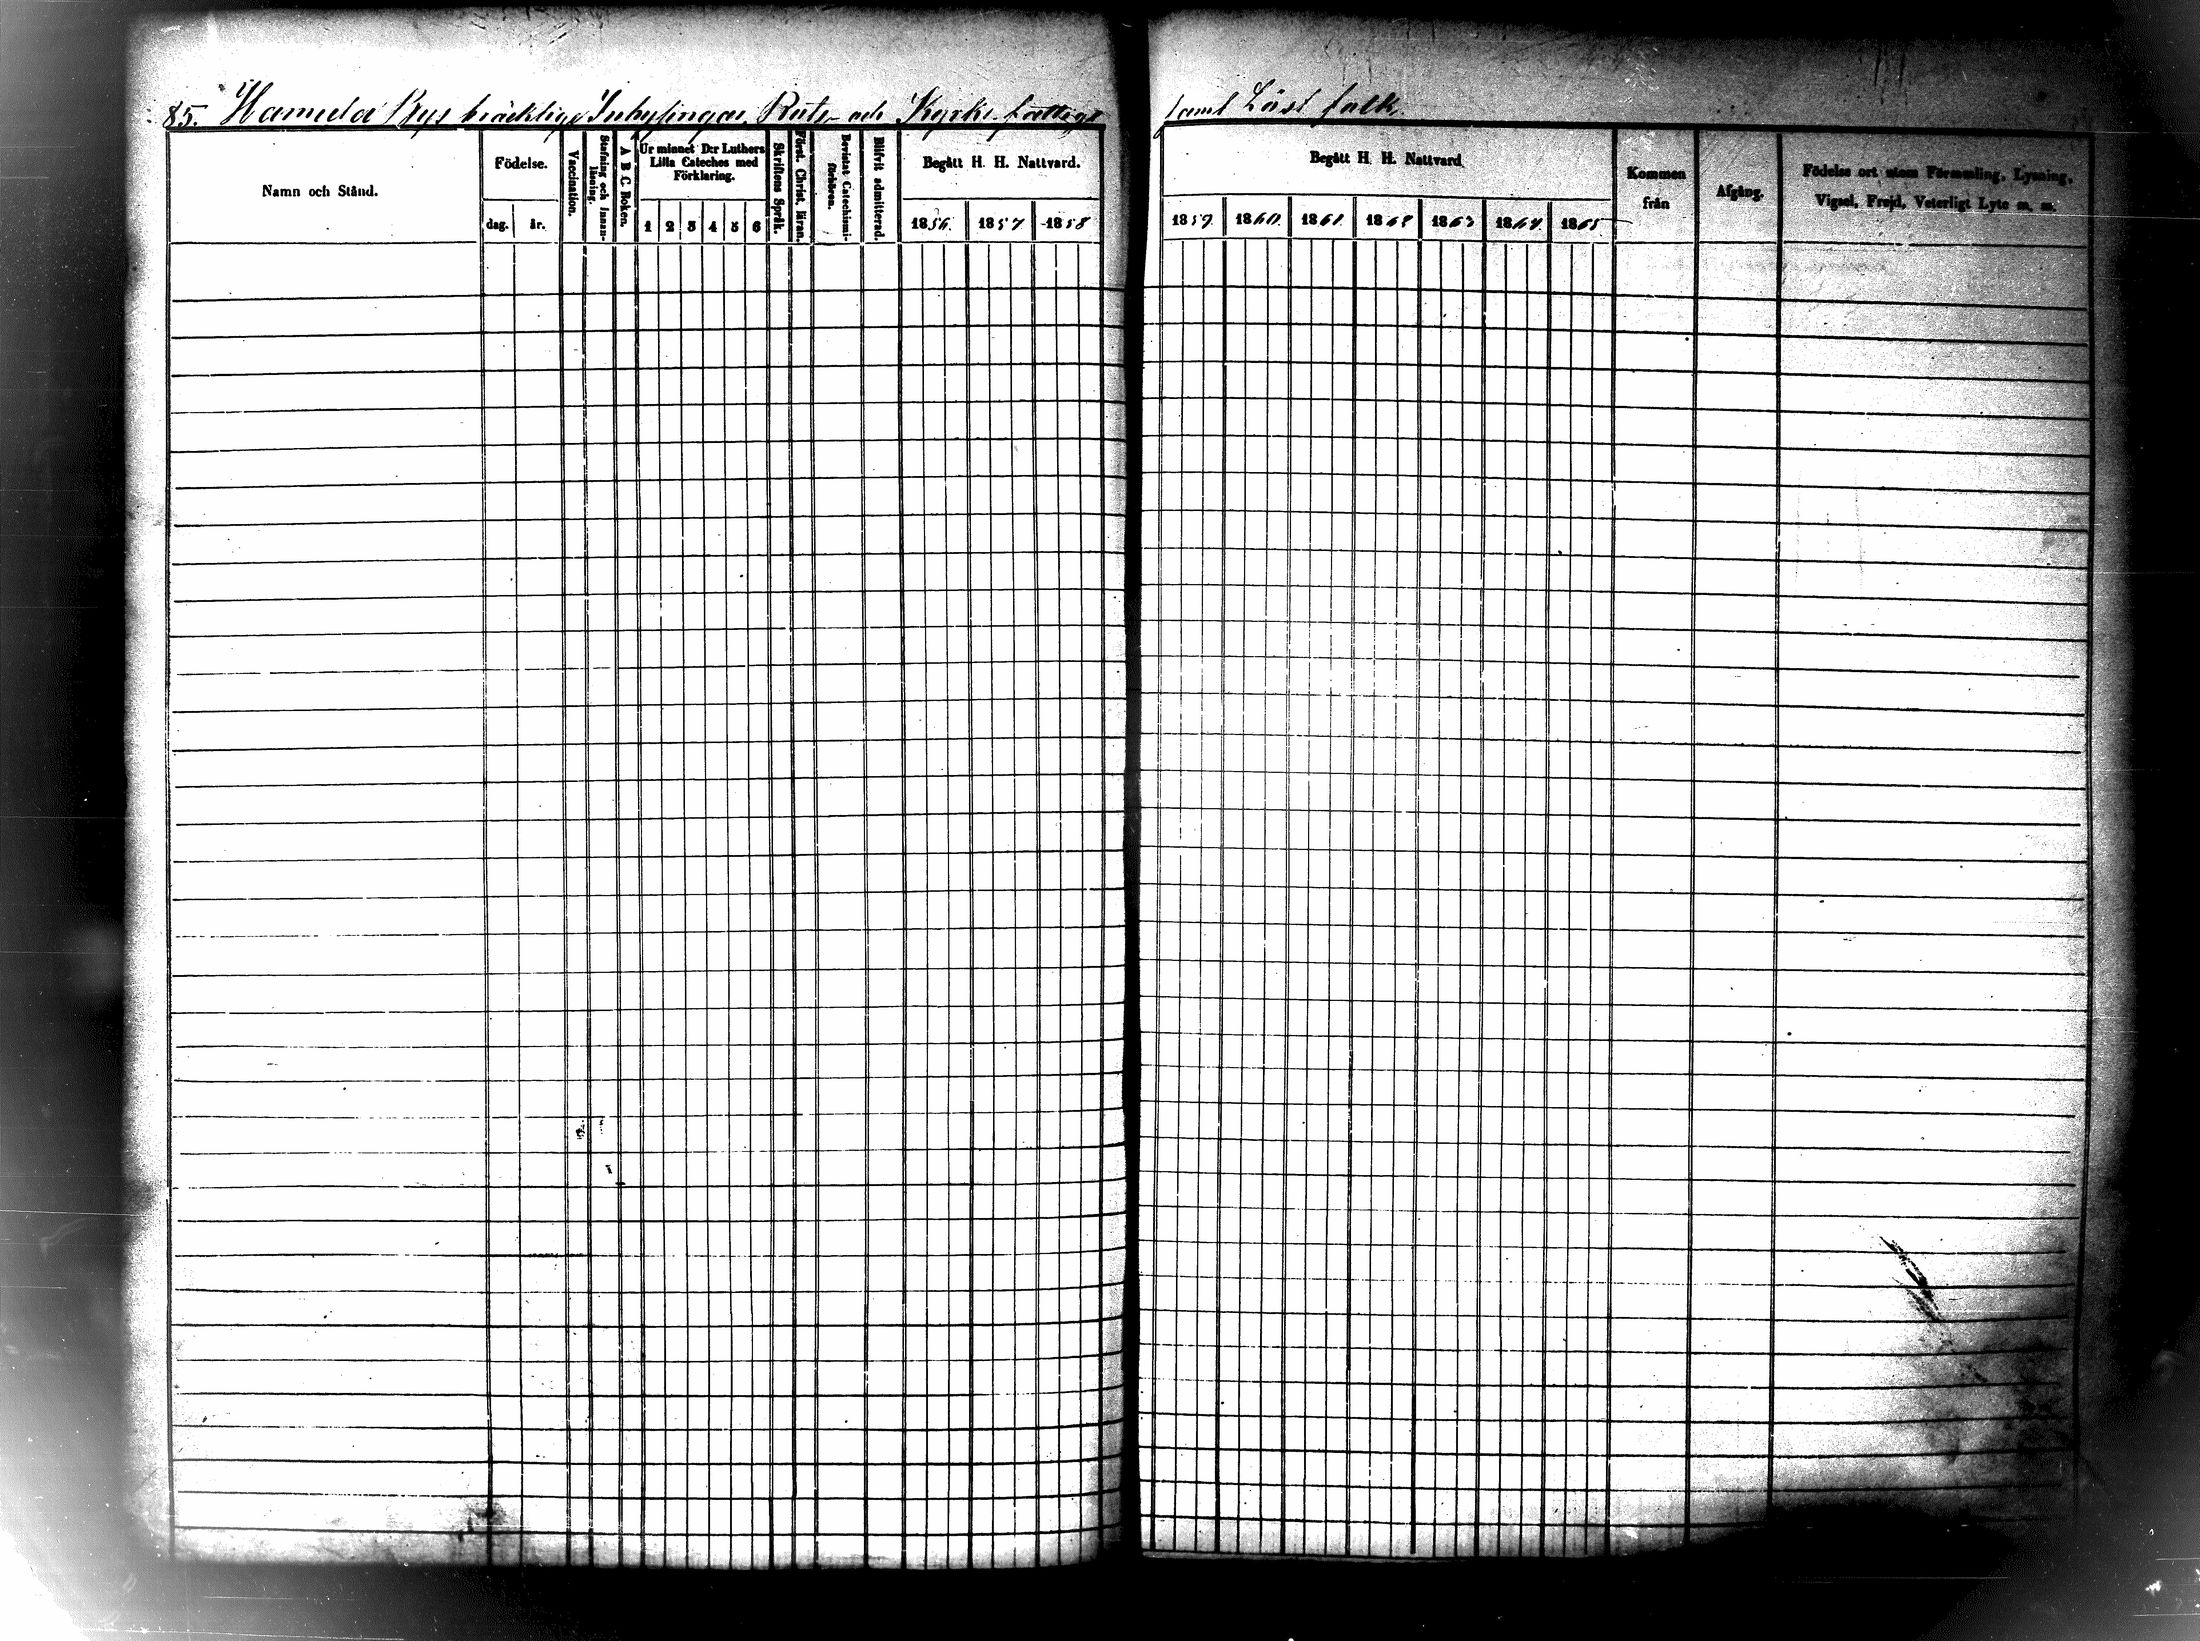 85. Hameda Bys bräcklige Inhysingar, Rote- och Kyrko-fattige samt Löst folk.
Namn och Stånd.
Födelse.
dag.
år.
Vaccination.
Stafning och Innan-läsning.
A B C Boken.
Ur minnet D:r Luthers
Lilla Cateches med
Förklaring.
1 2 3 4 5 6
Skriftens Språk.
Först. Christ. läran.
Bevistat Catechismi-förhören.
Blifvit admitterad.
Begått H. H. Nattvard.
1856. 1857. 1858
Begått H. H. Nattvard
1859. 1860. 1861. 1862 1863 1864. 1865
Kommen
från
Afgång.
Födelse ort utom Församling, Lysning,
Vigsel, Frejd, Veterligt Lyte m. m.